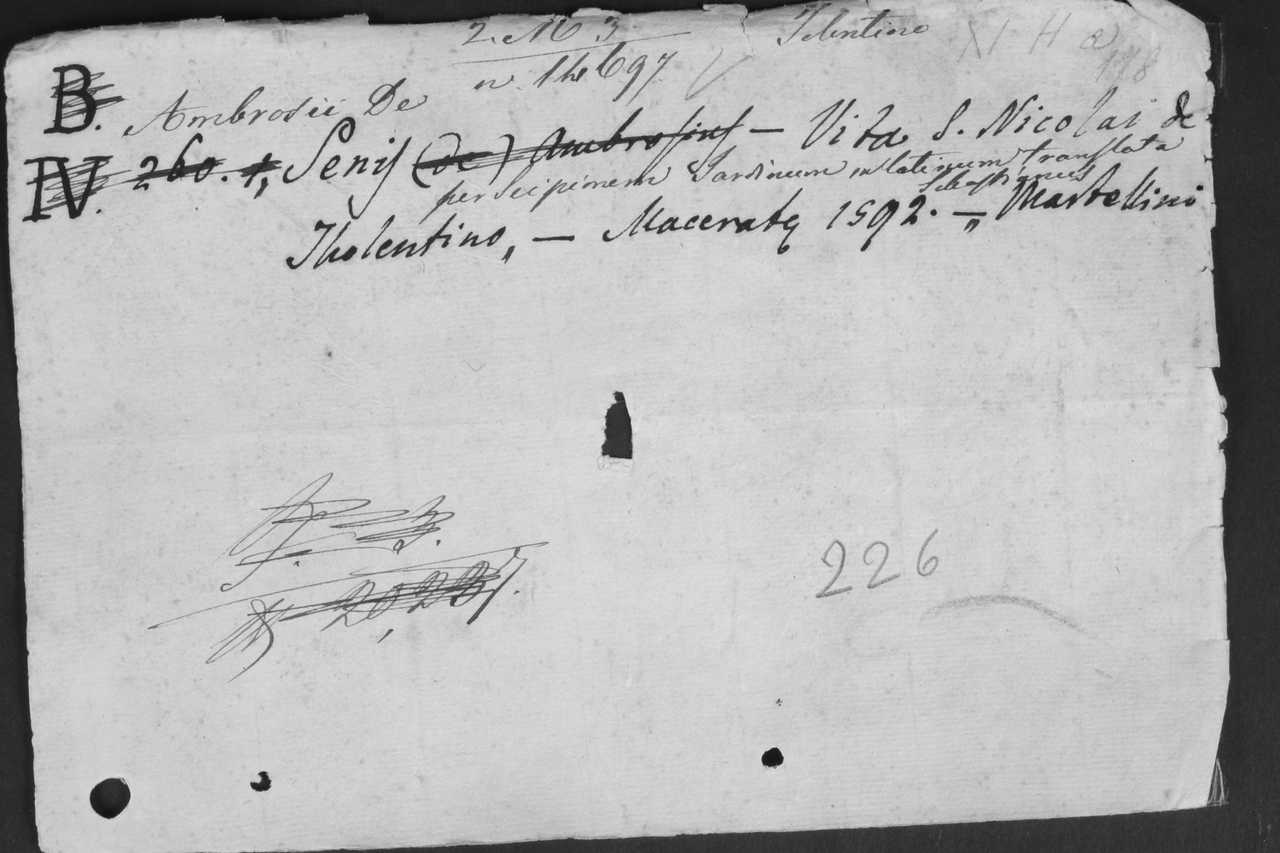 2. M 3. Tolentino XI H a
n. 1697 118
B. Ambrosii De
IV. 260. 1, Senis (de) Ambrosius — Vita S. Nicolai de
per Scipionem Sardinum in latinum translata
Tholentino, — Maceratę 1592. — Sebastianus Martellini
226
20,287.